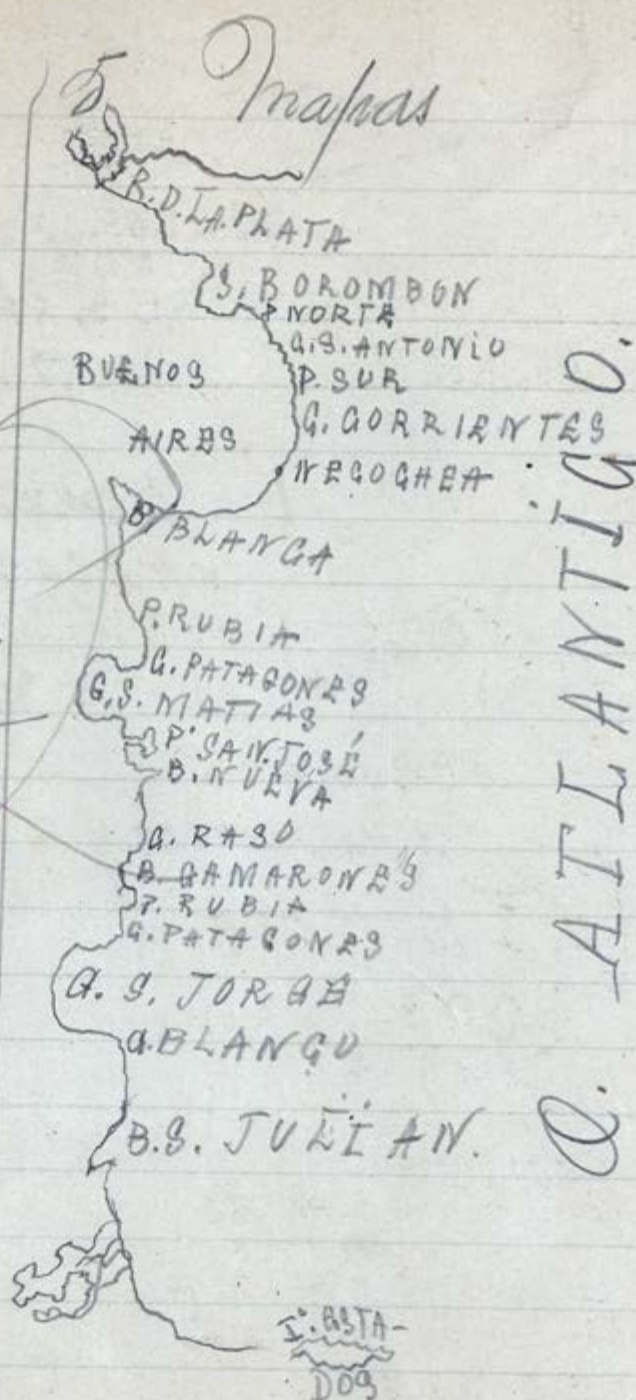 5 Mapas
R.D.LA.PLATA
S. BOROMBON
P. NORTE
C.S.ANTONIO
P. SUR
C. CORRIENTES
NECOCHEA
BUENOS
AIRES
B. BLANCA
P. RUBIA
C. PATAGONES
G.S. MATIAS
P. SAN. JOSÉ
B. NUEVA
C. RASO
B. CAMARONES
P. RUBIA
C. PATAGONES
G. S. JORGE
C. BLANCO
B.S. JULIAN.
I. ESTA-
DOS
O. ATLANTICO.